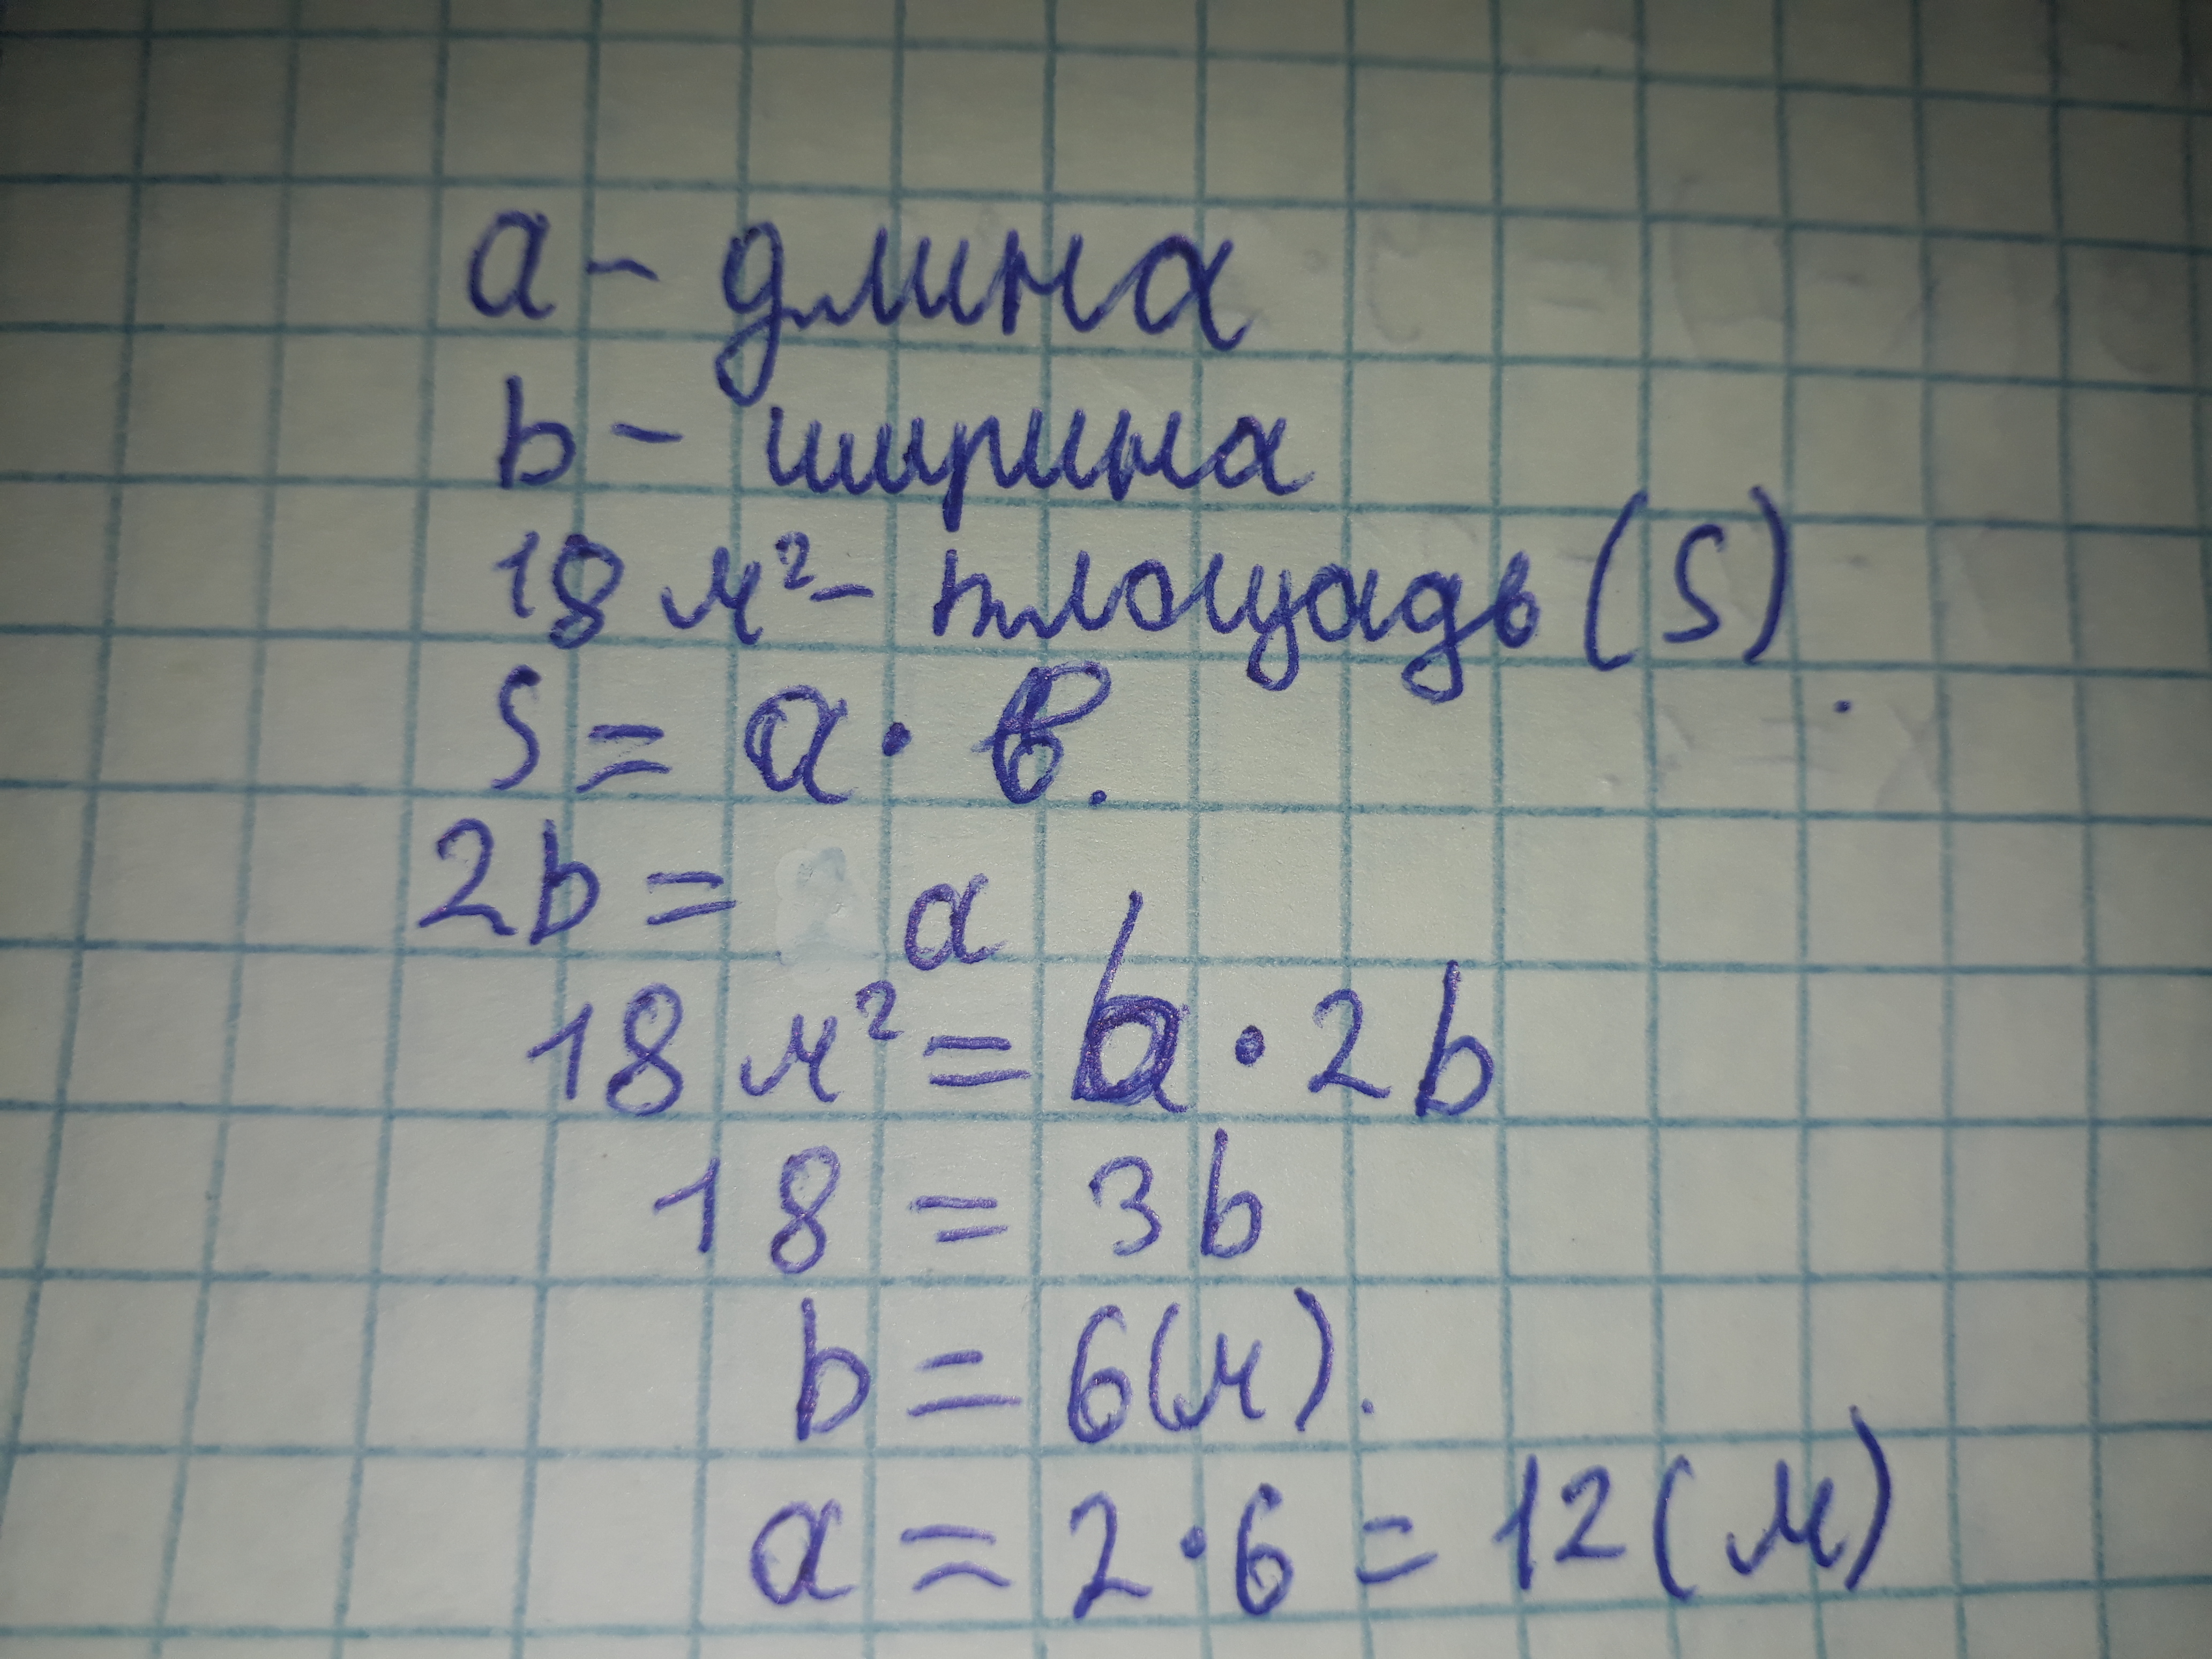 a - длина
b - ширина
18 м² - площадь (S).
S = a · b.
2b = a
18 м² = b · 2b
18 = 3b
b = 6(м).
a = 2 · 6 = 12 (м)